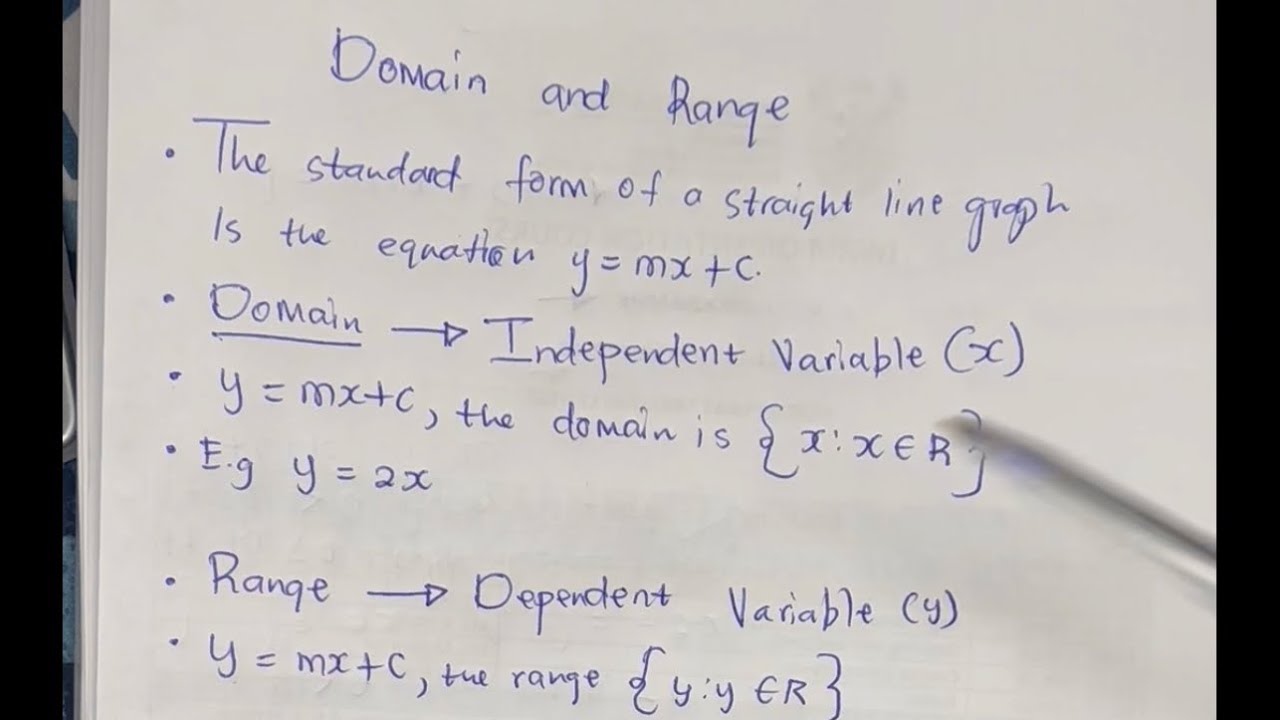 Domain and Range
• The standard form of a straight line graph
Is the equation y = mx + c.
• Domain → Independent Variable (x)
• y = mx+c, the domain is {x : x ∈ R}
• E.g y = 2x
• Range → Dependent Variable (y)
• y = mx+c, the range {y : y ∈ R}